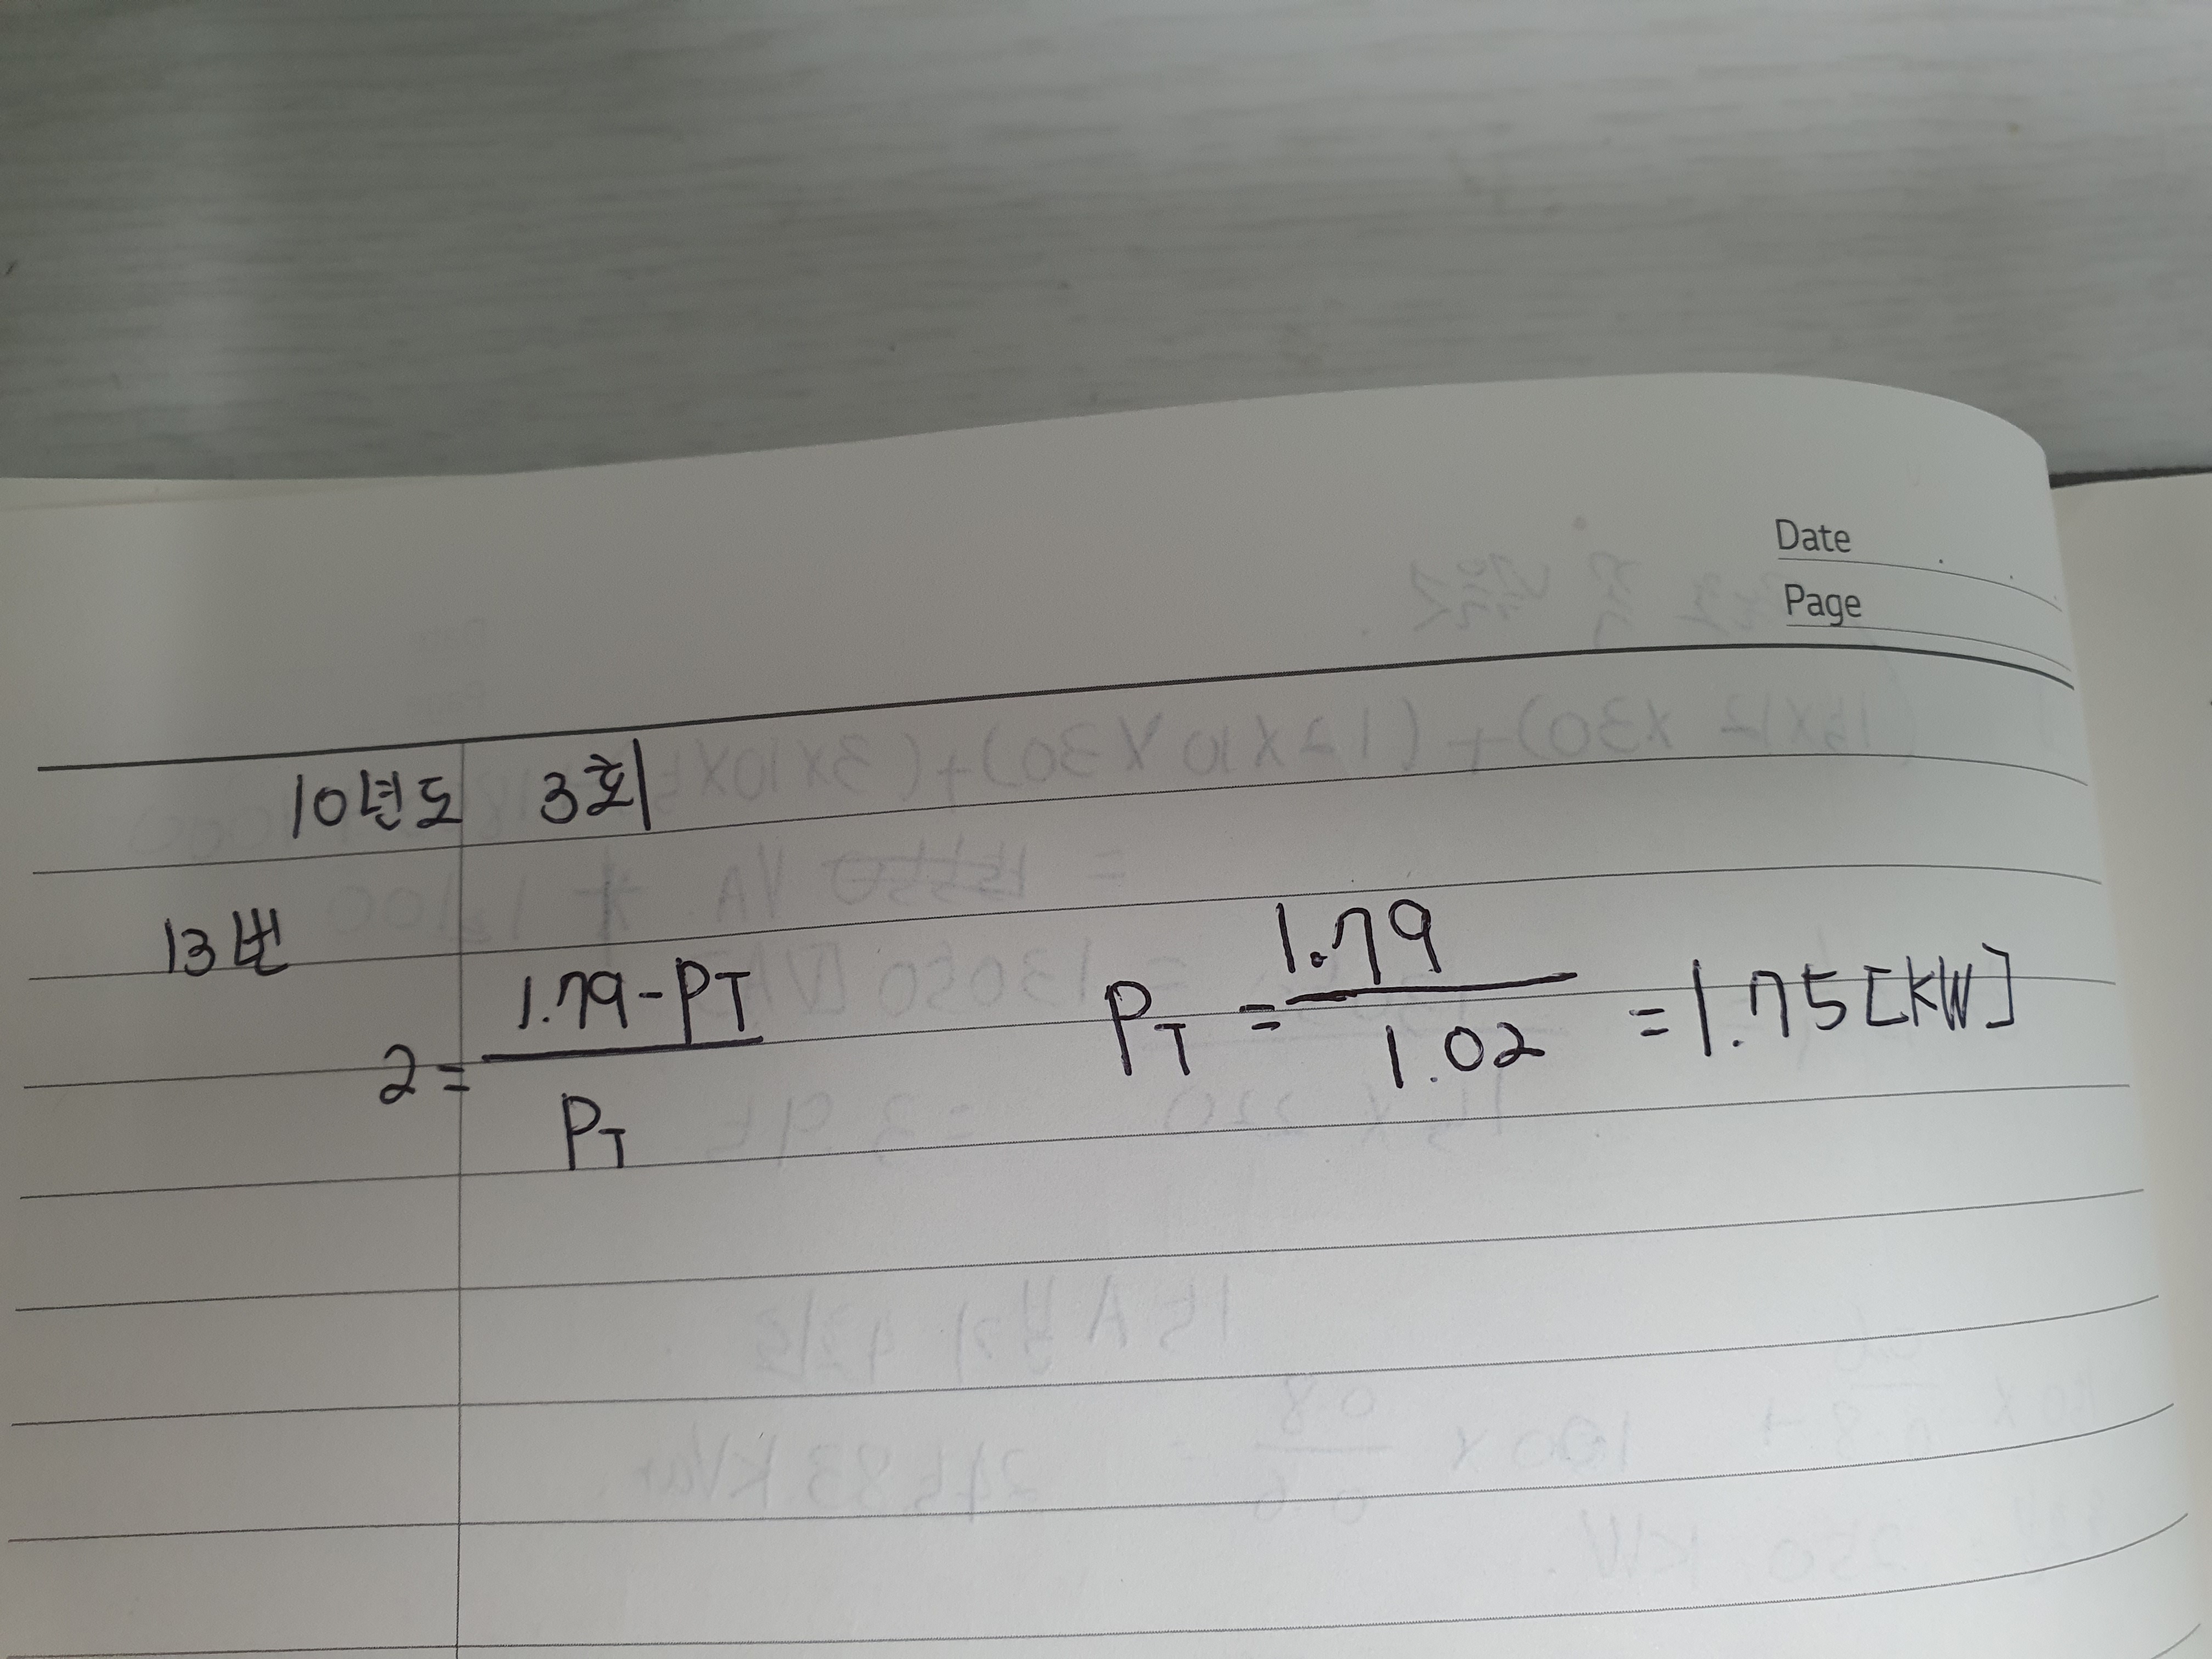 Date
Page
10년도 3회
13번
2 = 1.79-PT / PT
PT = 1.79 / 1.02 = 1.75[KW]